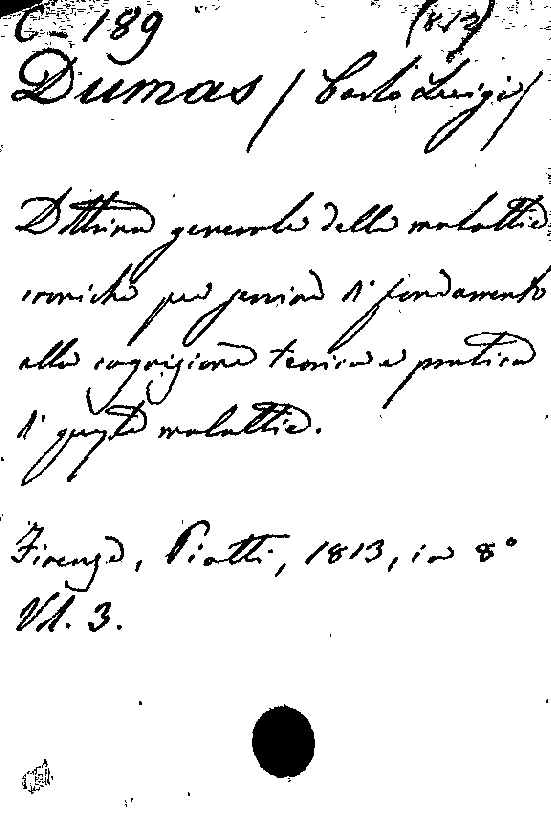 C - 189 (813)
Dumas / Carlo Luigi /
Dottrina generale delle malattie
croniche per servire di fondamento
alla cognizione teorica e pratica
di queste malattie.
Firenze, Piatti, 1813, in 8°
Vol. 3.